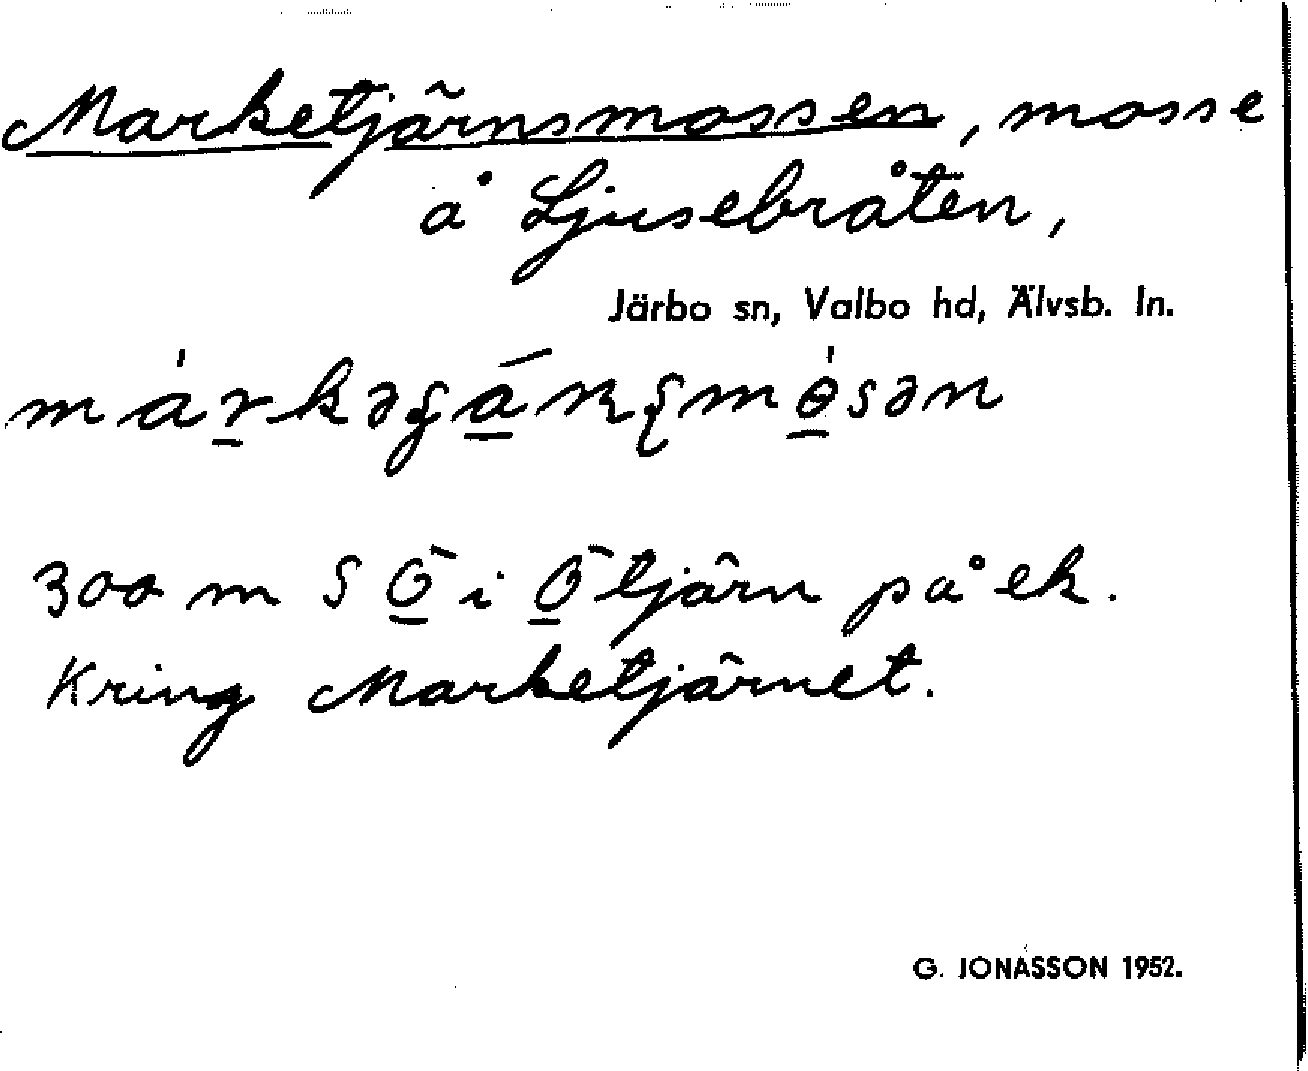 Marketjärnsmossen, mosse
å Ljusebråten,
Järbo sn, Valbo hd, Älvsb. ln.
300 m S Ö i Ötjärn på ek.
Kring Marketjärnet.
G. JONASSON 1952.